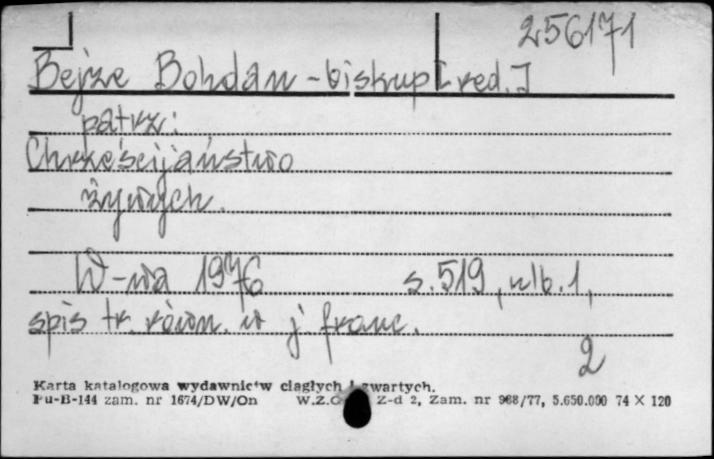 256171
Bejze Bohdan - biskup [red.]
patrz:
Chrześcijaństwo
żywych.
W-wa 1976 s. 519, nlb. 1,
spis tr. równ. w j. franc.
2
Karta katalogowa wydawnictw ciągłych i zwartych.
Pu-B-144 zam. nr 1674/DW/On W.Z.G. Z-d 2, Zam. nr 968/77, 5.650.000 74 X 120